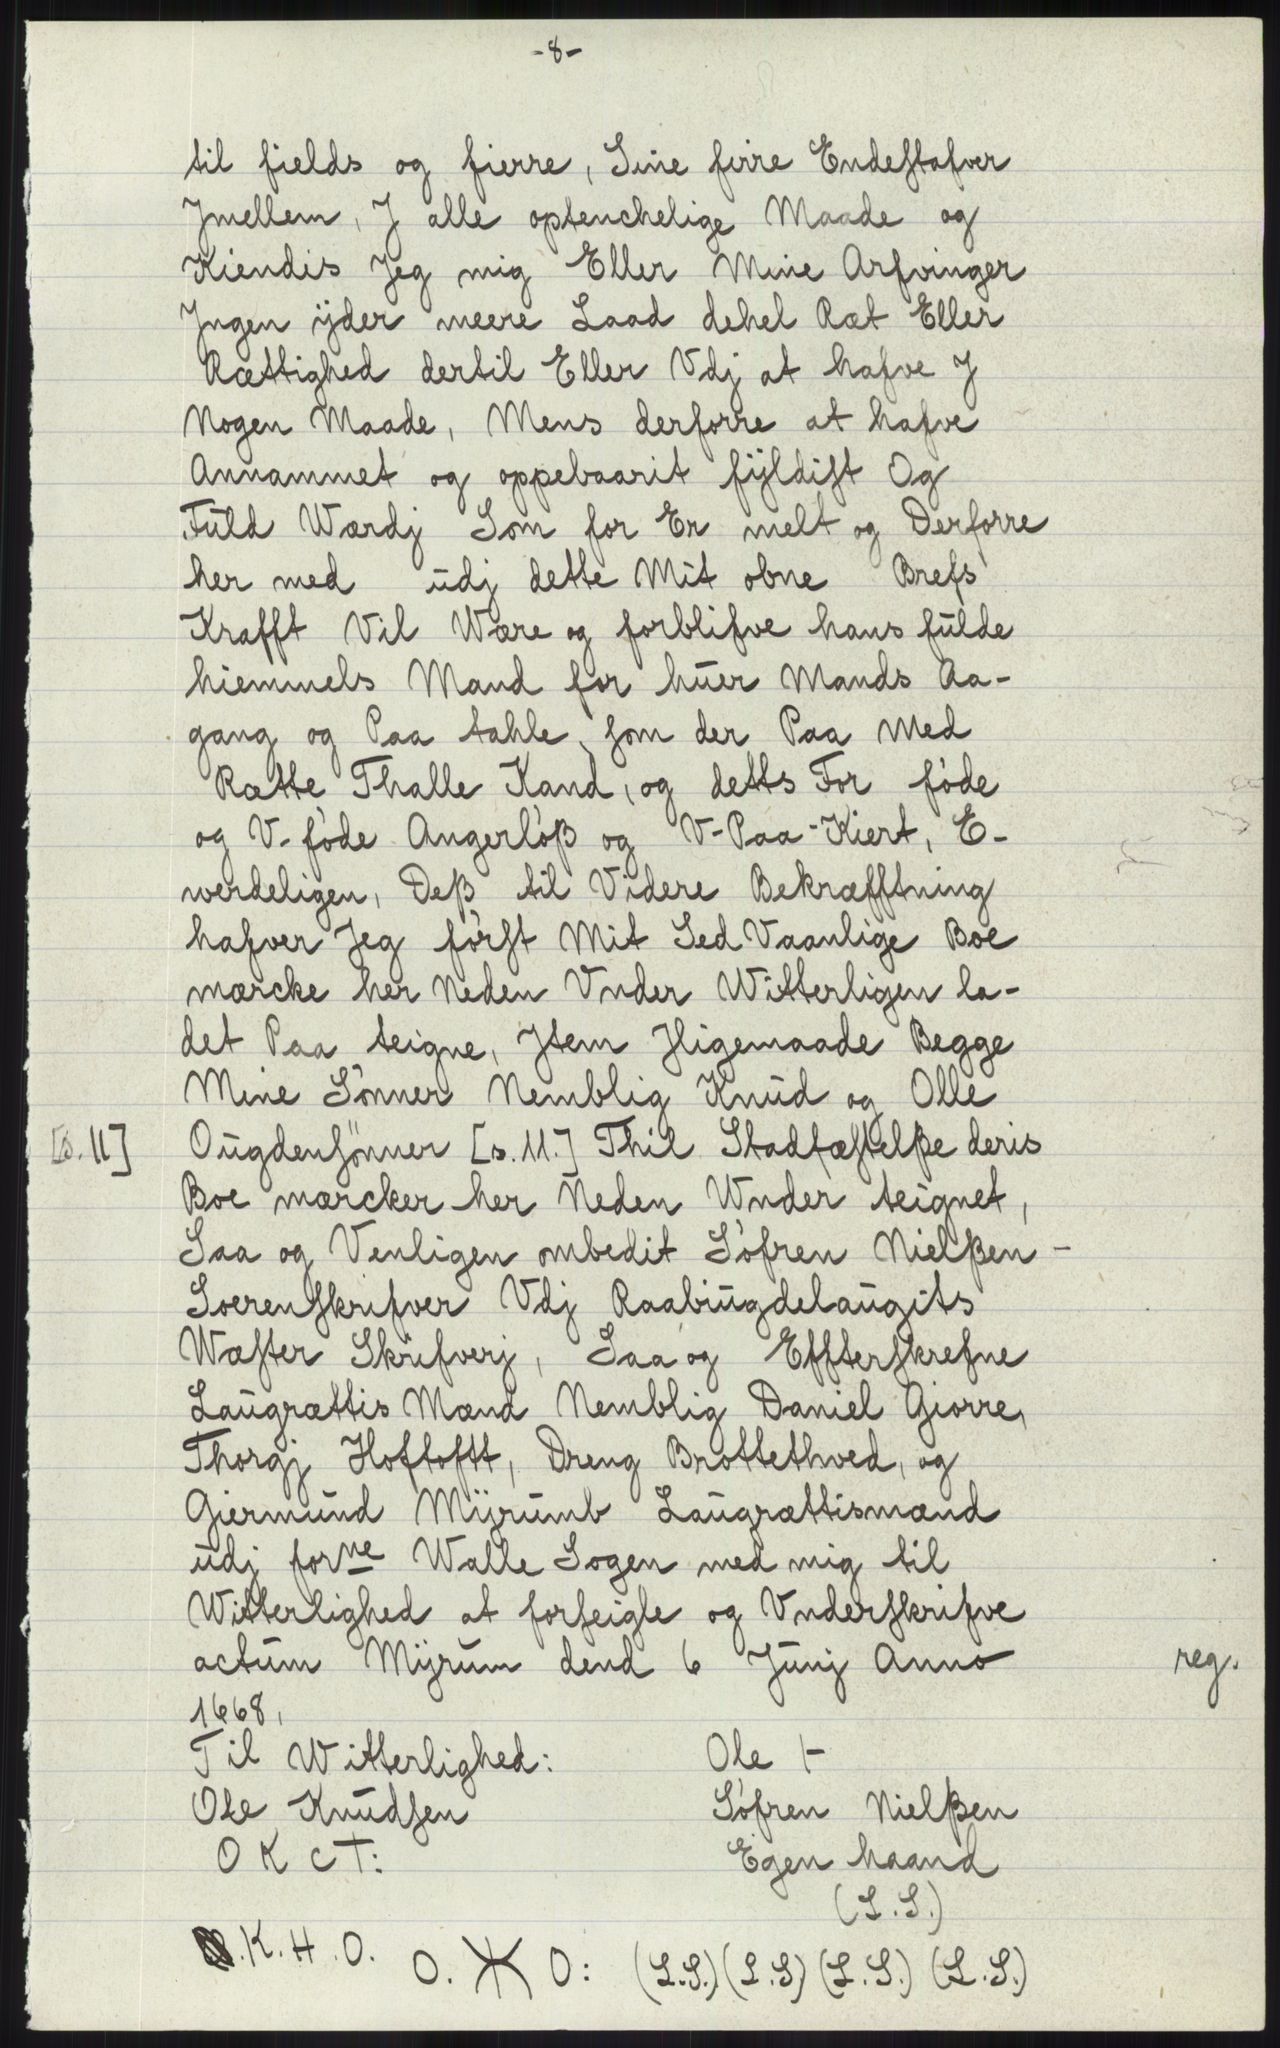 -8-
til fields og fierre, Sine firre Endestafver
Jmellem, J alle optenchelige Maade og
Kiendis Jeg mig Eller Mine Arfvinger
Jngen ÿder meere Laad dehel Ræt Eller
Rættighed dertil Eller Vdj at hafve J
Nogen Maade, Mens derforre at hafve
Annammet og oppebaarit fÿldist Og
Fuld Wærdj Som for Er melt og Derforre
her med udj dette Mit obne Brefs
Krafft Vil Wære og forblifve hans fulde
hiemmels Mand for huer Mands Aa-
gang og Paa tahle, som der Paa med
Rætte Thalle Kand, og detts For føde
og V-føde Angerløß og V-Paa-Kiert, E-
werdeligen, Deß til Videre Bekræfftning
hafver Jeg først Mit Sed Vaanlige Boe
mærcke her Neden Vnder Witterligen la-
det Paa teigne, Jtem Jligemaade Begge
Mine Sønner Nemblig Knud og Olle
[s. 11] Ougdensønner [s. 11.] Thil Stadfæstelße deris
Boe mærcker her Neden Wnder teignet,
Saa og Venligen ombedit Søfren Nielßen-
Soerenskrifver Vdj Raabiugdelaugits
Wæster Skrifverj, Saa og Effterskrefne
Laugrættis Mænd Nemblig Daniel Giorre,
Thorgj Hoftoftt, Dreng Brottethved, og
Giermund Mÿrumb Laugrættismænd
udj forne Walle Sogen med mig til
Witterlighed at forseigle og Vnderskrifve
actum Mÿrum dend 6 Junj Anno reg.
1668,
Til Witterlighed: Ole
Ole Knudsen Søfren Nielßen
O K cT: Egen haand
(L.S.)
.K.H.O. O. O: (L.S.) (L.S) (L.S.) (L.S.)